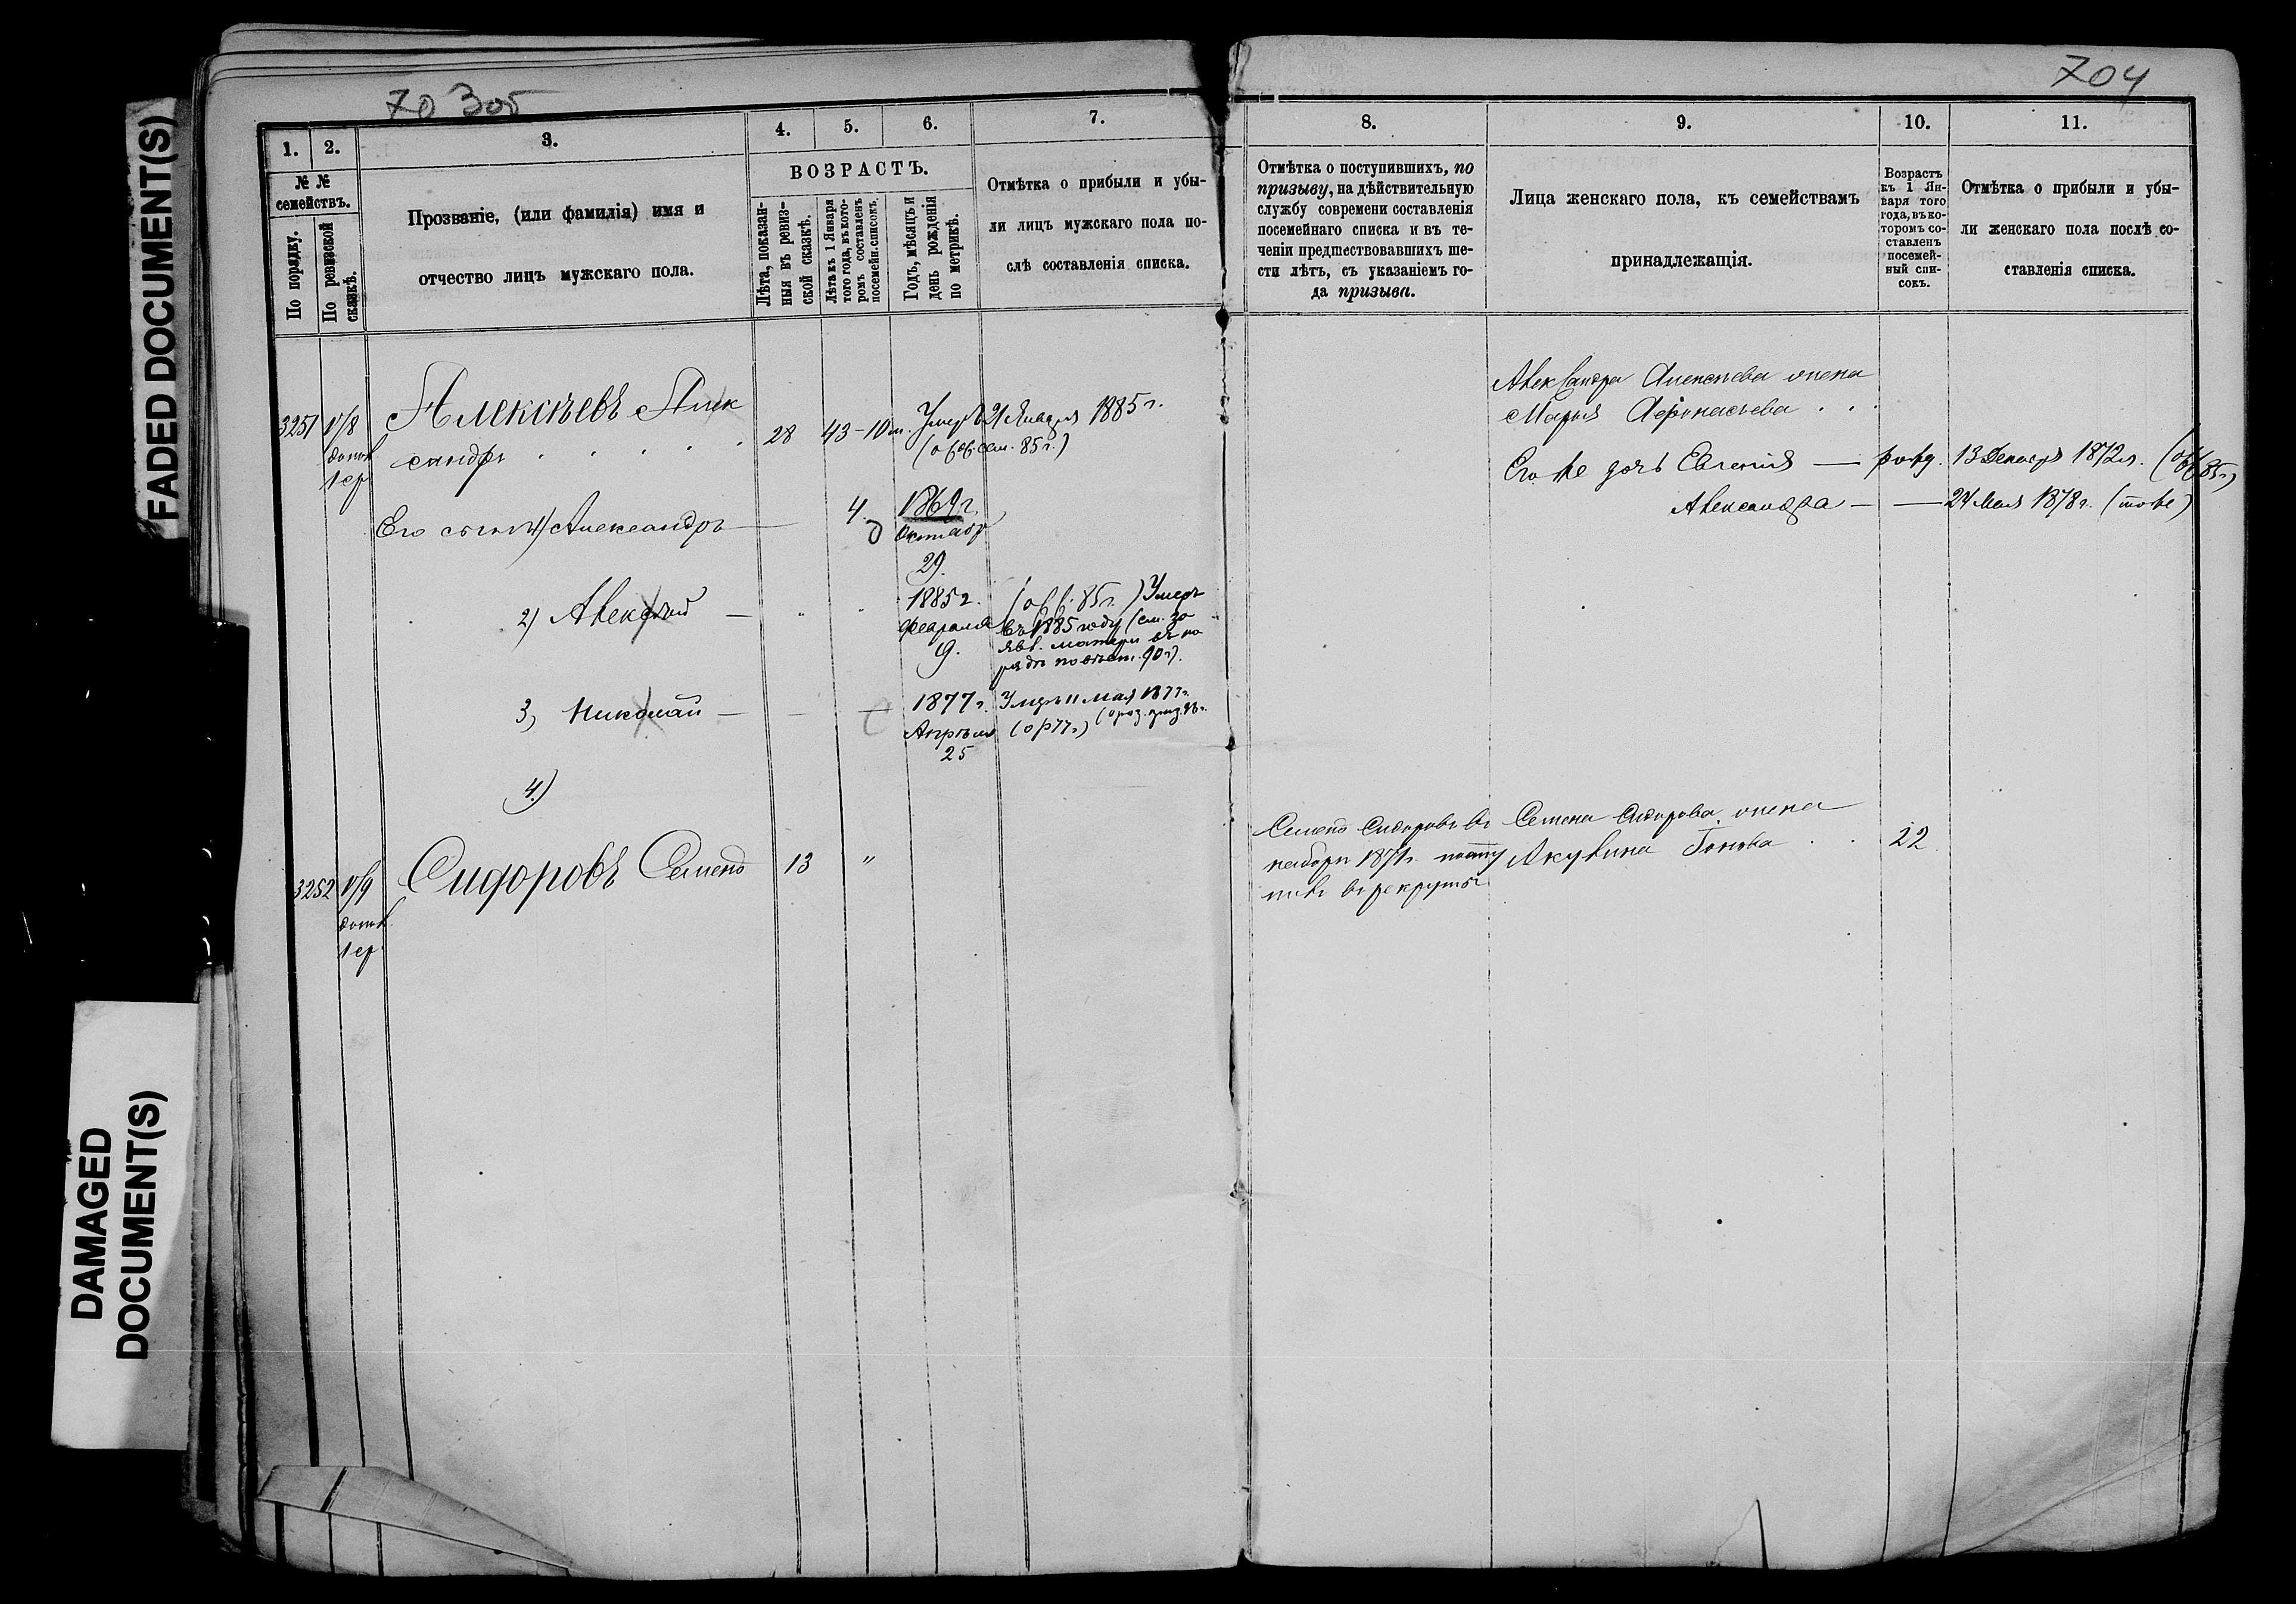 FADED DOCUMENT(S)
DAMAGED
DOCUMENT(S)
70 305
704
1.
2.
3.
4.
5.
6.
7.
№ №
семействъ.
По порядку.
По ревизской
сказкѣ.
Прозваніе, (или фамилія) имя и
отчество лицъ мужскаго пола.
ВОЗРАСТЪ.
Лѣта, показан-
ныя въ ревиз-
ской сказкѣ.
Лѣта къ 1 Января
того года, въ кото-
ромъ составленъ
посемейн. списокъ.
Годъ, мѣсяцъ и
день рожденія
по метрикѣ.
Отмѣтка о прибыли и убы-
ли лицъ мужскаго пола по-
слѣ составленія списка.
8.
9.
10.
11.
Отмѣтка о поступившихъ, по
призыву, на дѣйствительную
службу современи составленія
посемейнаго списка и въ те-
ченіи предшествовавшихъ ше-
сти лѣтъ, съ указаніемъ го-
да призыва.
Лица женскаго пола, къ семействамъ
принадлежащія.
Возрастъ
къ 1 Ян-
варя того
года, въ ко-
торомъ со-
ставленъ
посемей-
ный спи-
сокъ.
Отмѣтка о прибыли и убы-
ли женскаго пола послѣ со-
ставленія списка.
3251
Алексѣевъ Алек
сандръ . . . . .
28
43-10 м.
Умеръ 21 Января 1885 г.
Александра Алексѣева жена
Марья Афонасьева . . .
Его же дочь Евгенія — рожд. 13 Декабря 1872 г.
Александра — — 24 Мая 1878 г. (тоже)
Его сынья 1) Александръ —
4
1869 г.
Октября
29.
2) Алексѣй —
1885 г.
Февраля
9.
Умеръ
въ 1885 году (см. за
явл. матери
3) Николай —
1877 г.
Апрѣля
25
Умеръ 11 Мая 1877 г.
4)
3252
Сидоровъ Семенъ
13
"
Семенъ Сидоровъ въ
наборъ 1871 г. посту
пилъ въ рекруты
Семена Сидорова жена
Акулина . .
22